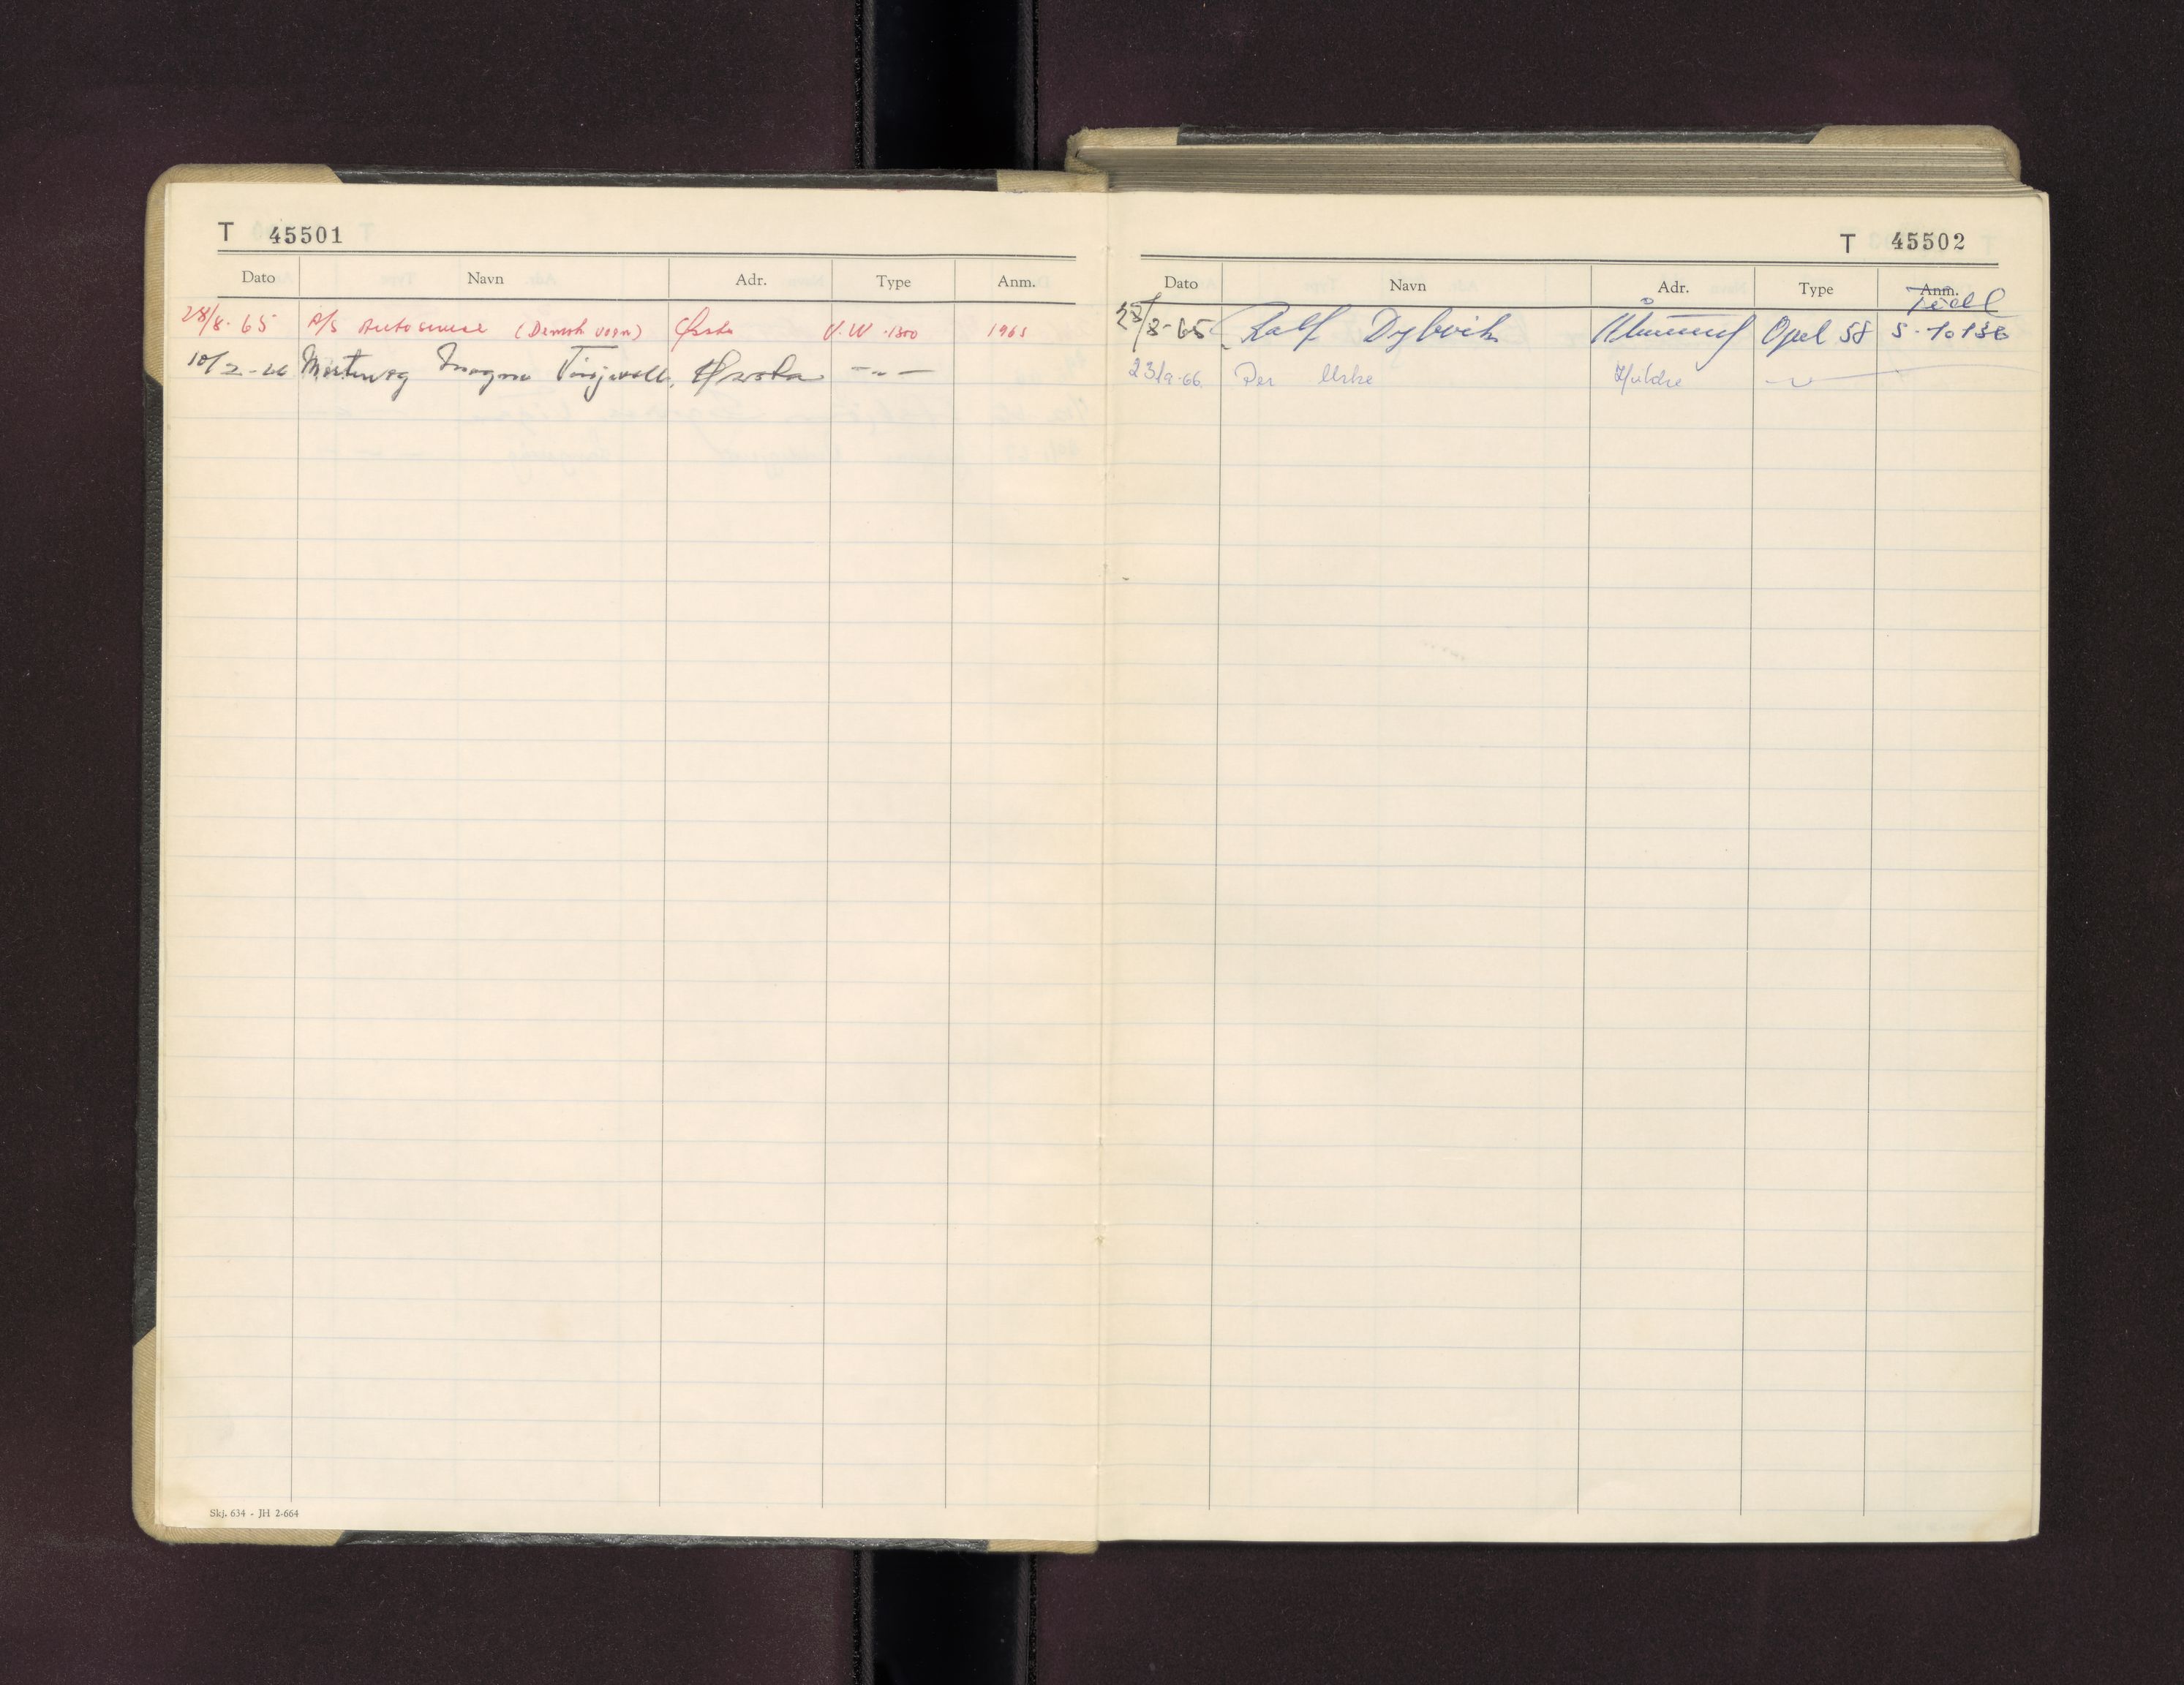 T 45501
Dato Navn Adr. Type Anm.
28/8-65 A/S Autoservice (Demostr vogn) Ørsta V.W. 1300 1965
10/2-66 Magne Ørsta -"-
Skj. 634 - JH 2-664
T 45502
Dato Navn Adr. Type Anm.
Tidl
28/8-65 Ralf Dybvik Opel 58 S-10138
23/9-66 Per Urke Huldre